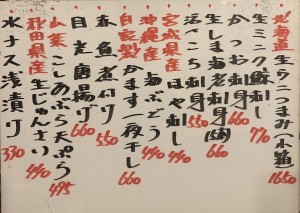 北海道 生ウニつまみ(小箱) 1650
生ミンク鯨刺し 770
かつお刺身 660
生しま海老刺身(5尾) 660
活べこち刺身 550
宮城県産 ほや刺し 440
沖縄産 海ぶどう 440
自家製 かます一夜干し 660
目光唐揚げ 660
赤魚煮付け 550
山菜 こしあぶら天ぷら 495
秋田県産 生じゅんさい 440
水ナス浅漬け 330